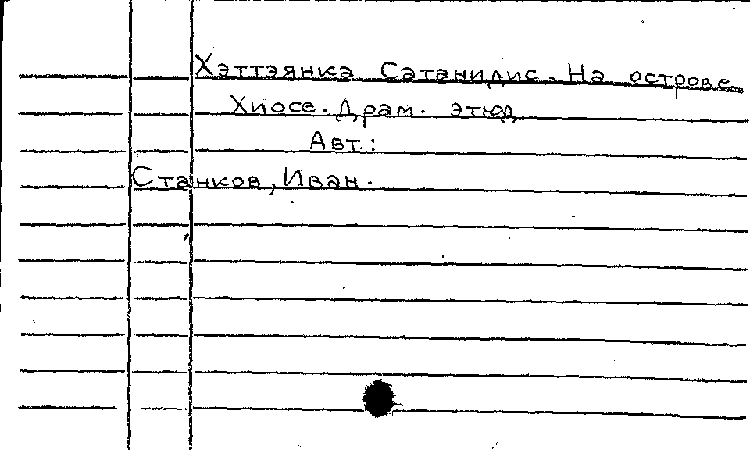 Хэттэянка Сатанидис. На острове
Хиосе. Драм. этюд
Авт.:
Станков, Иван.